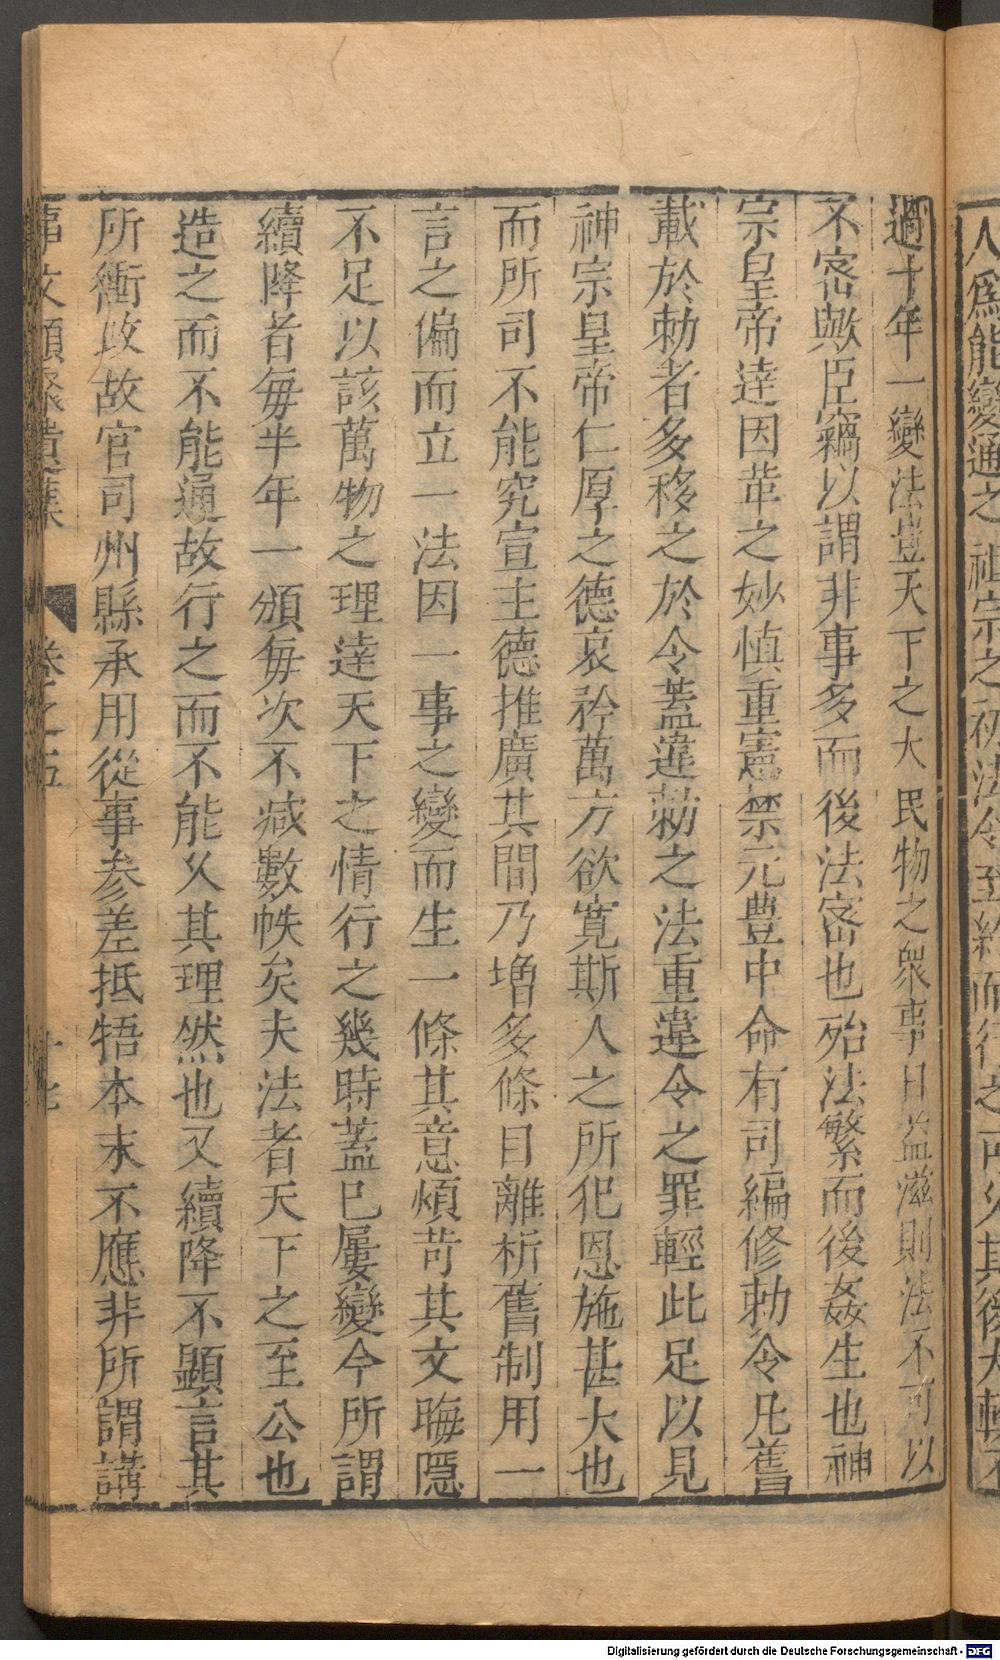 人爲能變通之 祖宗之初法令至約而行之可久其後大較不
過十年一變法豈天下之大民物之衆事日益滋則法不可以
不密歟臣竊以謂非事多而後法密也殆法繁而後姦生也神
宗皇帝達因革之妙慎重憲禁元豊中命有司編修勅令凡舊
載於勅者多移之於令蓋違勅之法重違令之罪輕此足以見
神宗皇帝仁厚之德哀矜萬方欲寛斯人之所犯恩施甚大也
而所司不能究宣主德推廣其間乃增多條目離析舊制用一
言之偏而立一法因一事之變而生一條其意煩苛其文晦隱
不足以該萬物之理達天下之情行之幾時蓋已屢變今所謂
續降者每半年一頒每次不减數帙矣夫法者天下之至公也
造之而不能通故行之而不能乆其理然也又續降不顯言其
所衝改故官司州縣承用從事參差抵牾本末不應非所謂講
事文類聚續集 卷之五 十七
Digitalisierung gefördert durch die Deutsche Forschungsgemeinschaft - DFG